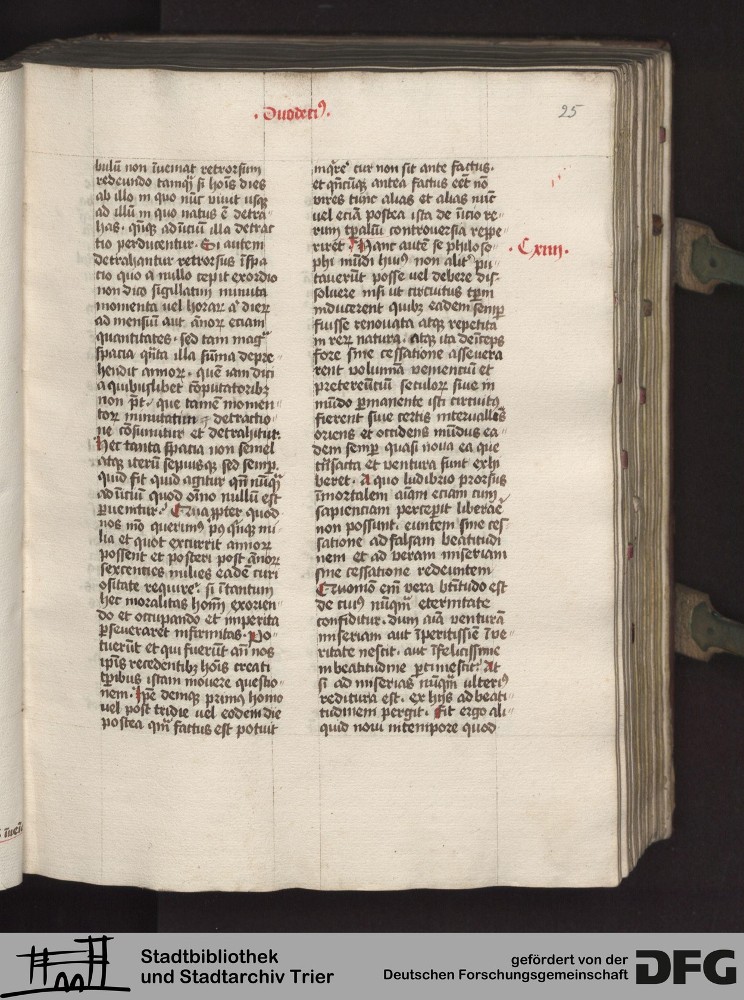 · Duodeciꝰ ·
25
bulū non īueniat retrorsum
redeundo tamqͣ si hoīs dies
ab illo in quo nūc viuit usqꝫ
ad illū in quo natus ē detra
has · qn̄qꝫ ad īiciū illa detrac
tio perducentur · Si autem
detrahantur retrorsus ī spa
cio quo a nullo cepit exordio
non dico sigillatim minuta
momenta uel horarꝝ aͨ dierꝝ
ad mensiū aut ānorꝝ eciam
quantitates · sed tam magͣ
spacia qn̄ta illa sūma depre
hendit annorꝝ · que iam dici
a quibuslibet cōputatoribꝫ
non pn̄t · que tamē momen
torꝝ minutatim detractio
ne cōsumitur et detrahitur
hec tanta spacia non semel
atqꝫ iterū sepiusqꝫ sed semꝑ
quid fit quid agitur qn̄ nūqͣ
ad īiciū quod oīno nullū est
ꝑuenitur · Quapꝓter quod
nos mō querimꝰ pꝰ qn̄qꝫ mi
lia et quot excurrit annorꝝ
possent et posteri post ānorꝝ
sexcenties milies eadē curi
ositate requirere · si ītantum
hec moralitas hoīm exorien
do et occupando et imperita
ꝑseueraret infirmitas · Po
tuerūt et qui fuerūt an̄ nos
ip̄is recedentibꝫ hoīs creati
tꝑibus istam mouere questio
nem · Ip̄e deniqꝫ primꝰ homo
uel post tridie uel eodem die
postea qm̄ factus est potuit
inqͥrere cur non sit ante factus ·
et qn̄cūqꝫ antea factus eēt nō
vires tunc alias et alias nūc
uel eciā postea ista de īicio re
rum tp̄aliū controuersia reppe
riret Hanc autē se philoso
· Cxiiij ·
phi mūdi huiꝰ non alitꝰ pu
tauerūt posse uel debere dis
soluere nisi ut circuitus tp̄m
inducerent quibꝫ eadem semꝑ
fuisse renouata atqꝫ repetita
in rerꝝ natura · Atqꝫ ita deīceps
fore sine cessatione asseuera
rent volumīa veniencium et
pretereūtium seculorꝝ siue in
mūdo ꝑmanente isti circuitꝰ
fierent siue certis interuallis
oriens et occidens mūdus ea
dem semꝑ quasi noua ea que
trāsacta et ventura sunt exhi
beret · A quo ludibrio prorsus
īmortalem aīam eciam cum
sapienciam percepit liberare
non possunt · euntem sine ces
satione ad falsam beatitudi
nem et ad veram miseriam
sine cessatione redeuntem
Quomō em̄ vera btītudo est
de cuiꝰ nūqͣm eternitate
confiditur · dum aīa venturā
miseriam aut īperitissie ī ve
ritate nescit · aut īfelicissime
in beatitudine ꝑtimescit · At
si ad miserias nūqͣm ulteriꝰ
reditura est · ex hijs ad beati
tudinem pergit · Fit ergo ali
quid noui in tempore quod
Stadtbibliothek
und Stadtarchiv Trier
gefördert von der
Deutschen Forschungsgemeinschaft
DFG